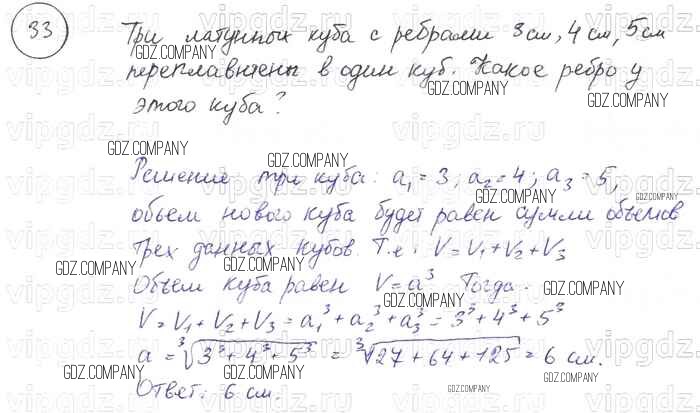 33 Три латунных куба с ребрами 3 см, 4 см, 5 см
переплавлены в один куб. Какое ребро у
этого куба?
Решение три куба: a₁ = 3, a₂ = 4; a₃ = 5,
объем нового куба будет равен сумме объемов
трех данных кубов. Т.е. V = V₁ + V₂ + V₃
Объем куба равен V = a³ Тогда
V = V₁ + V₂ + V₃ = a₁³ + a₂³ + a₃³ = 3³ + 4³ + 5³
a = ∛(3³ + 4³ + 5³) = ∛(27 + 64 + 125) = 6 см.
Ответ: 6 см.